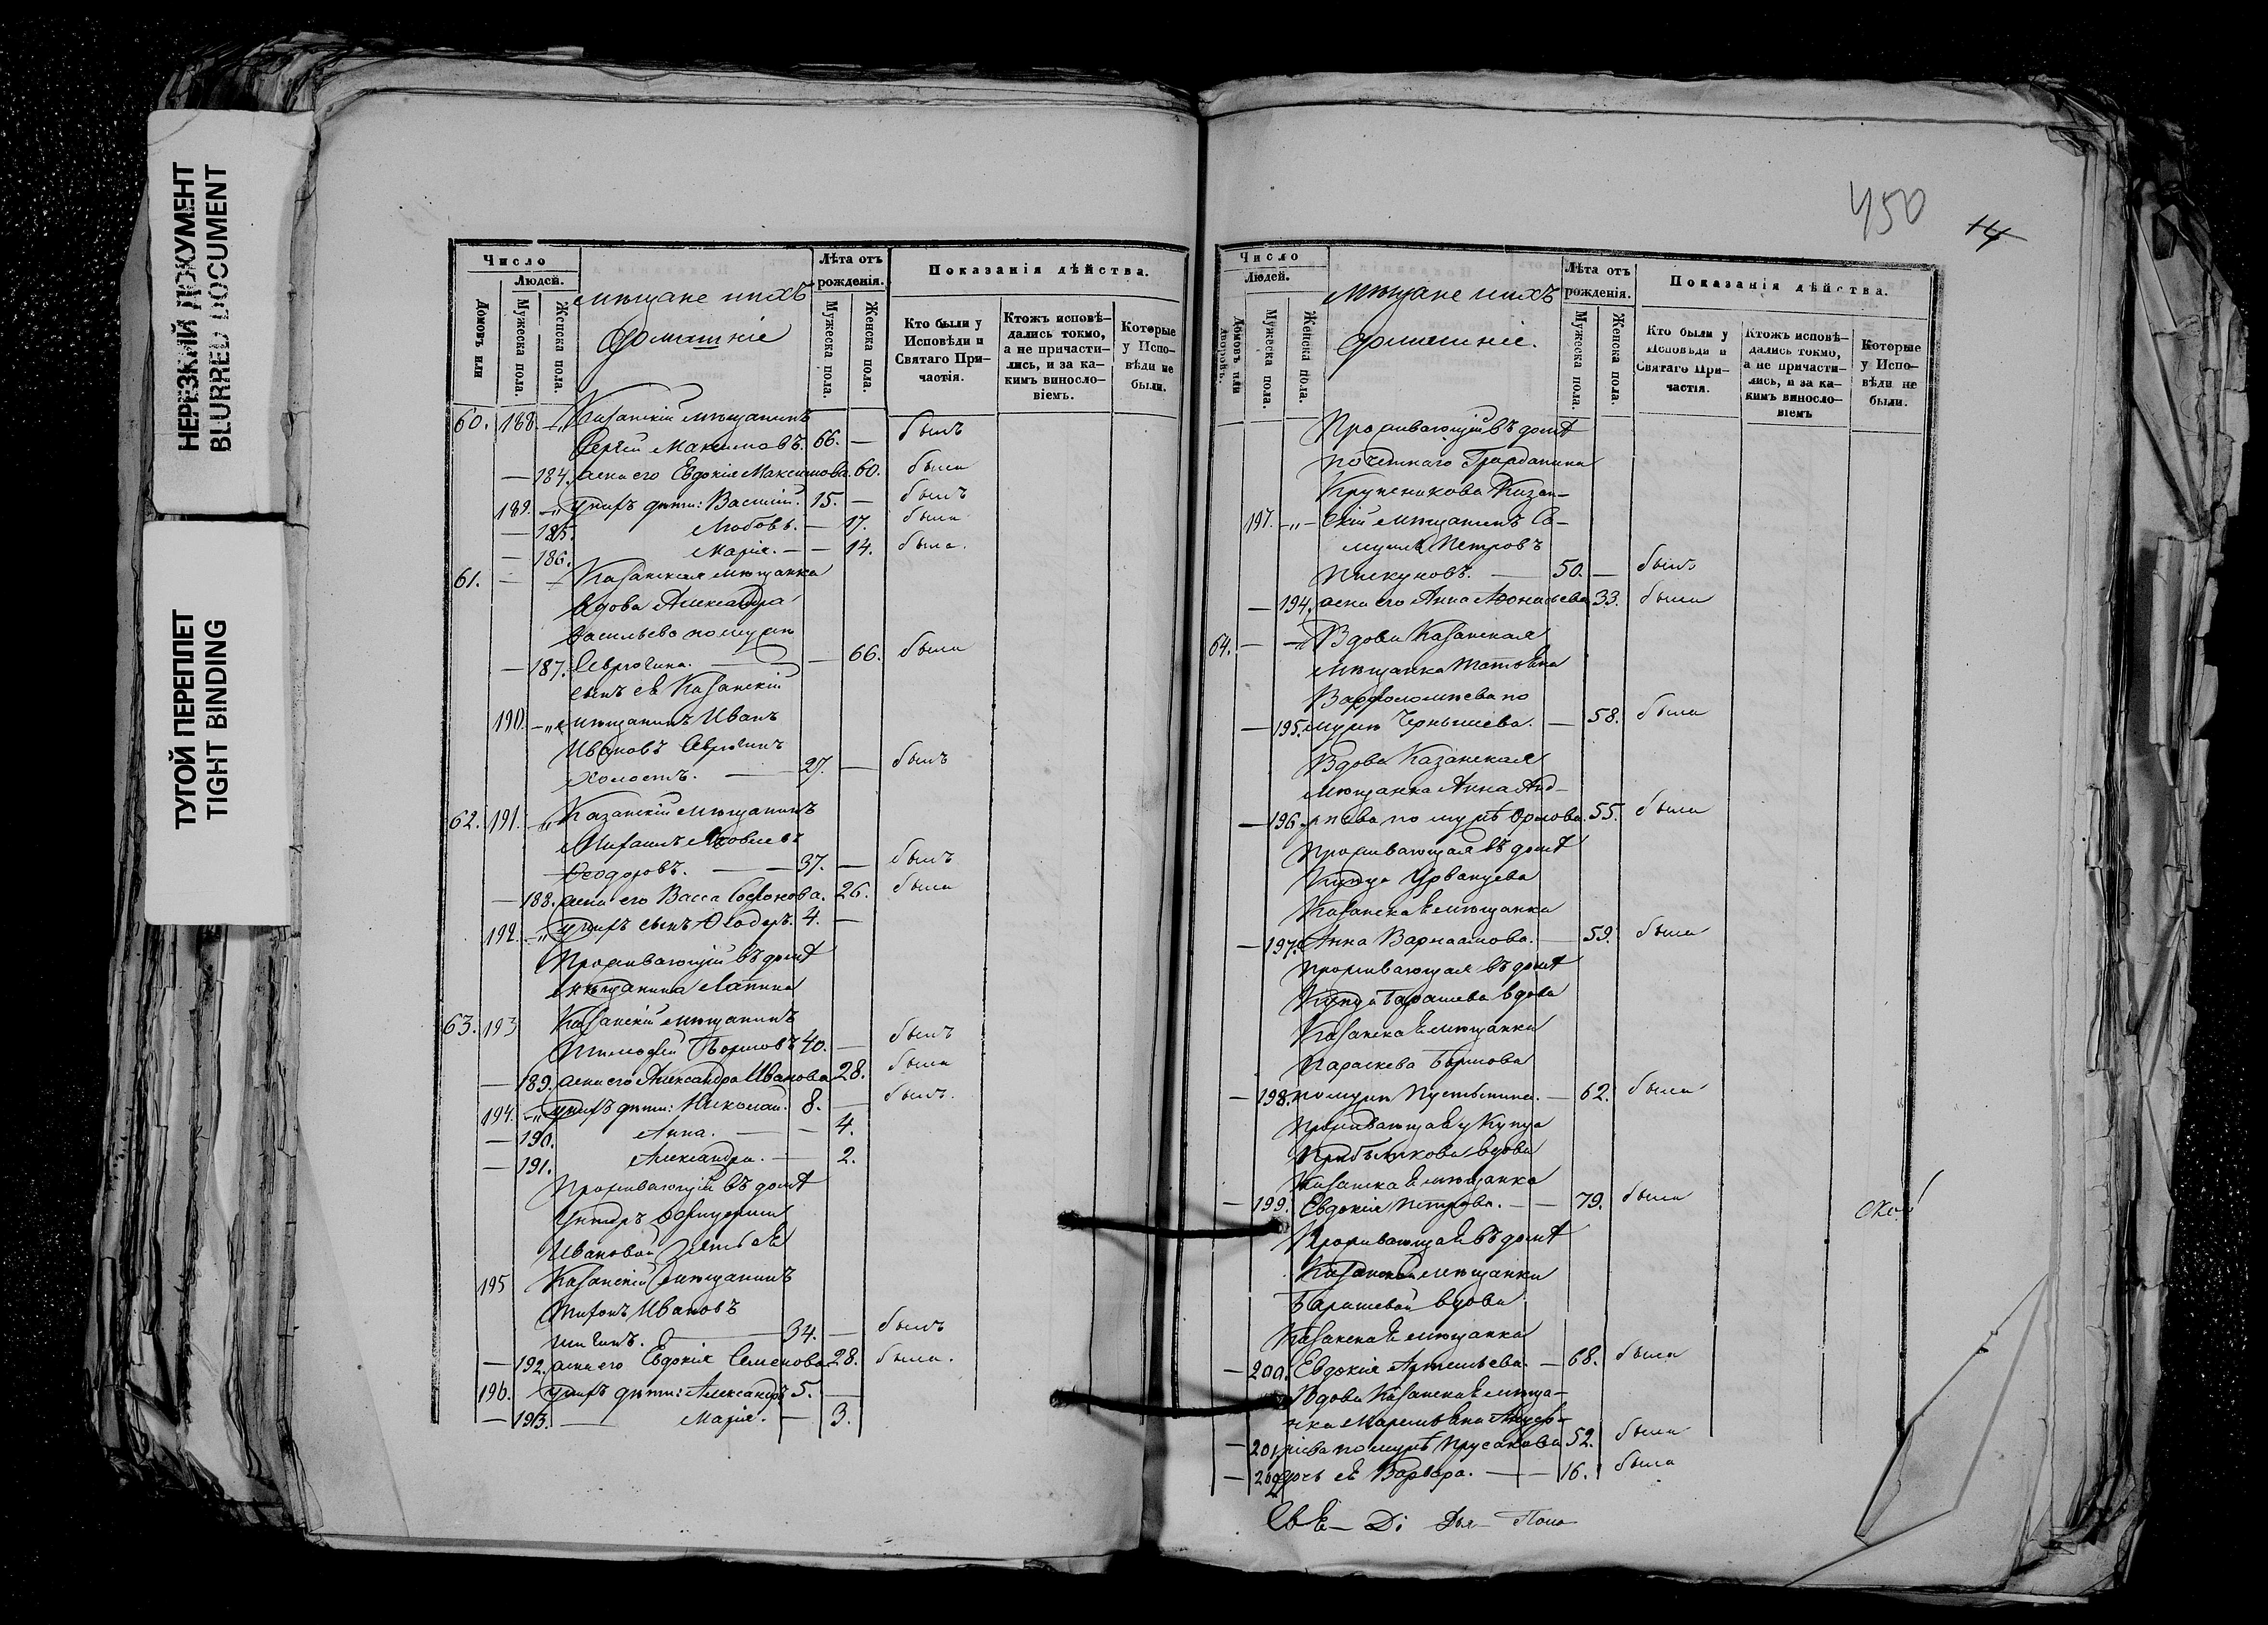 НЕРЕЗКИЙ ДОКУМЕНТ
BLURRED DOCUMENT
ТУГОЙ ПЕРЕПЛЕТ
TIGHT BINDING
Число
Людей.
Домовъ или
Мужеска пола.
Женска пола.
мѣщане и ихъ
домашніе
Лѣта отъ рожденія.
Мужеска пола.
Женска пола.
Показанія дѣйства.
Кто были у Исповѣди и Святаго Причастія.
Ктожъ исповѣдались токмо, а не причастились, и за какимъ винословіемъ.
Которые у Исповѣди не были.
60. 188. Казанскій мѣщанинъ
Сергій Максимовъ. 66. — былъ
— 184. жена его Евдокія Максимова. 60. была
189. у нихъ дѣти: Василій. 15. — былъ
— 185. Любовь. — 17. была
— 186. Марія. — — 14. была.
61. — — Казанская мѣщанка
вдова Александра
Васильева по мужѣ
— 187. Севрюгина. — — 66. была
сынъ ея Казанскій
190. мѣщанинъ Иванъ
Ивановъ Севрюгинъ
холостъ. — 27. — былъ
62. 191. Казанскій мѣщанинъ
Михаилъ Яковлевъ
Ѳеодоровъ. — — 37. — былъ
— 188. жена его Васса Софонова. 26. была
192. у нихъ сынъ Ѳеодоръ. 4. —
Проживающій въ домѣ
мѣщанина Лапина
63. 193 Казанскій мѣщанинъ
Тимофей Борисовъ 40. — былъ
— 189. жена его Александра Иванова 28. была
194. у нихъ дѣти: Николай. 8. — былъ.
— 190. Анна. — — 4.
— 191. Александра. — 2.
Проживающій въ домѣ
Унтеръ Офицерши
Ивановой зять ея
195 Казанскій мѣщанинъ
Тихонъ Ивановъ
— 34. — былъ
— 192. жена его Евдокія Семенова 28. была.
196. у нихъ дѣти: Александръ 5. —
— 193. — Марія. — 3.
450
14
Число
Людей.
Домовъ или дворовъ.
Мужеска пола.
Женска пола.
Мѣщане и ихъ
домашніе.
Лѣта отъ рожденія.
Мужеска пола.
Женска пола.
Показанія дѣйства.
Кто были у Исповѣди и Святаго Причастія.
Ктожъ исповѣдались токмо, а не причастились, и за какимъ винословіемъ
Которые у Исповѣди не были.
Проживающій въ домѣ
почетнаго Гражданина
Крупеникова Казан-
197. -„- скій мѣщанинъ Са-
муилъ Петровъ
Пискуновъ. — 50. — былъ
— 194. жена его Анна Аѳонасьева 33. была
64. — — Вдова Казанская
мѣщанка Татьяна
Варфоломѣева по
— 195. мужѣ Чернышева. — 58. была
Вдова Казанская
мѣщанка Анна Анд-
— 196. рѣева по мужѣ Орлова. 55. была
Проживающая въ домѣ
Купца Урванцева
Казанская мѣщанка
— 197. Анна Варлаамова. — 59. была
Проживающая въ домѣ
Купца Барашева вдова
Казанская мѣщанка
Параскева Борисова
— 198. по мужѣ Пустынина. — 62. была
Проживающая у Купца
Прибыткова вдова
Казанская мѣщанка
— 199. Евдокія Петрова. — — 79. была
Проживающая въ домѣ
Казанской мѣщанки
Барашевой вдова
Казанская мѣщанка
— 200. Евдокія Артемьева. — 68. была
Вдова Казанская мѣща-
нка
— 201. по мужѣ Прусакова 52. была
— 202 дочь ея Варвара. — — 16. была